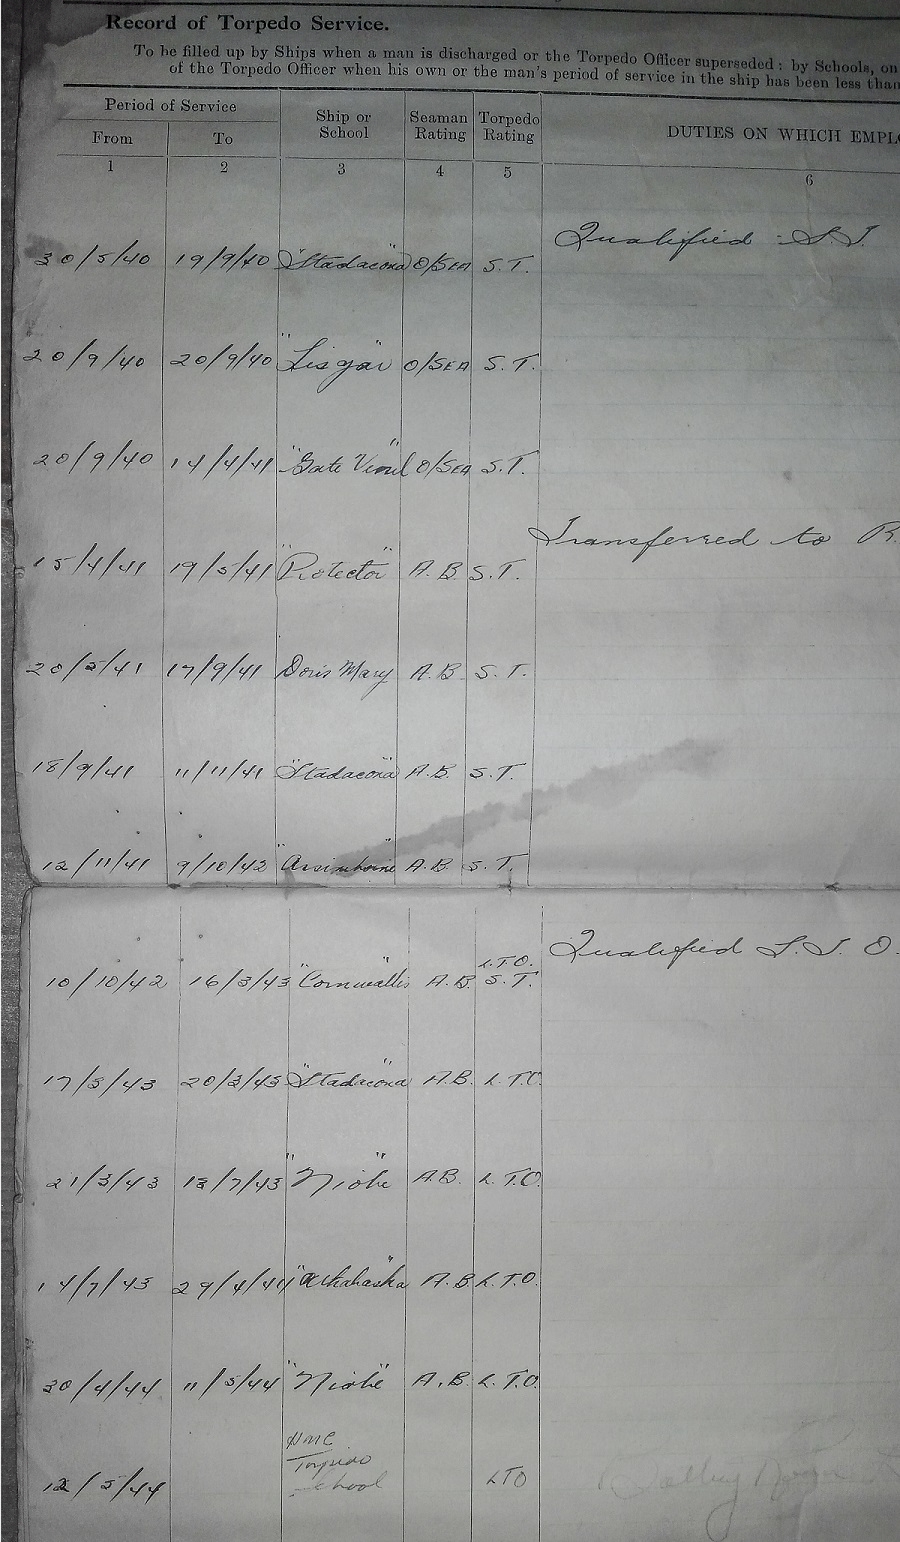 Record of Torpedo Service.
To be filled up by Ships when a man is discharged or the Torpedo Officer superseded: by Schools, on
of the Torpedo Officer when his own or the man's period of service in the ship has been less than
Period of Service
From To Ship or School Seaman Rating Torpedo Rating DUTIES ON WHICH EMPLO
1 2 3 4 5 6
Qualified - S.T.
30/5/40 19/9/40 "Stadacona" O/SEA S.T.
20/9/40 20/9/40 "Lisgar" O/SEA S.T.
20/9/40 14/4/41 "Gate Vessel" O/SEA S.T.
Transferred to R.
15/4/41 19/5/41 "Protector" A.B. S.T.
20/5/41 17/9/41 Doris Mary A.B. S.T.
18/9/41 11/11/41 "Stadacona" A.B. S.T.
12/11/41 9/10/42 "Assiniboine" A.B. S.T.
Qualified L.T.O.
L.T.O.
10/10/42 16/3/43 "Cornwallis" A.B. S.T.
17/3/43 20/3/43 "Stadacona" A.B. L.T.O.
21/3/43 13/7/43 "Niobe" A.B. L.T.O.
14/7/43 29/4/44 "Athabaska" A.B. L.T.O.
30/4/44 11/5/44 "Niobe" A.B. L.T.O.
HMC
Torpedo
School
12/5/44 LTO